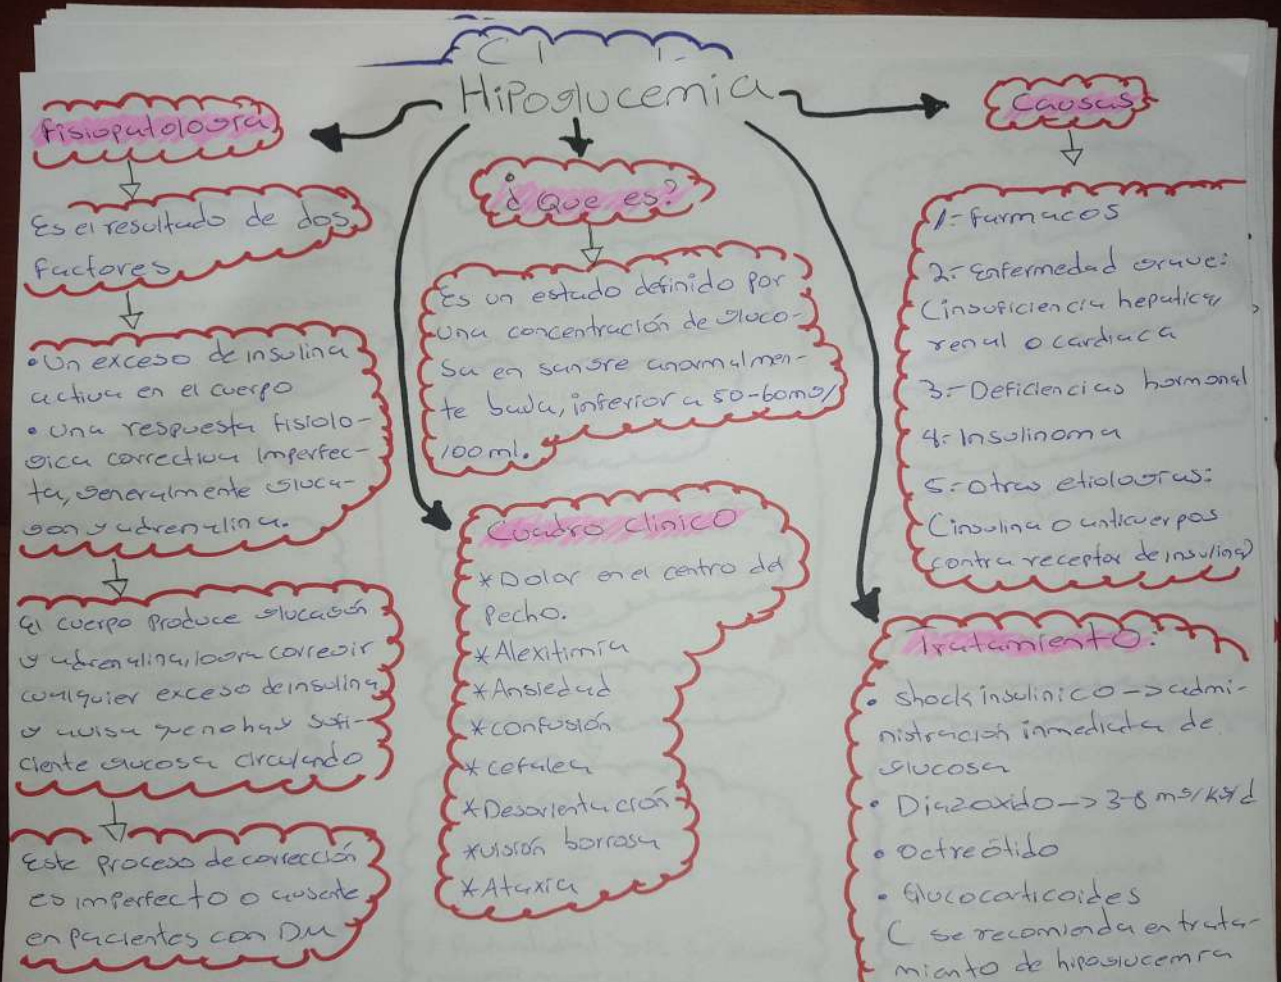 Hipoglucemia
Fisiopatología
Es el resultado de dos
factores
• Un exceso de insulina
activa en el cuerpo
• Una respuesta fisiolo-
gica correctiva imperfec-
ta, generalmente gluca-
gon y adrenalina.
El cuerpo produce glucagón
y adrenalina, logra corregir
cualquier exceso de insulina
y avisa que no hay sufi-
ciente glucosa circulando
Este proceso de corrección
es imperfecto o ausente
en pacientes con DM
¿Que es?
Es un estado definido por
una concentración de gluco-
sa en sangre anormalmen-
te baja, inferior a 50-60mg/
100ml.
Cuadro clinico
* Dolor en el centro del
pecho.
* Alexitimia
* Ansiedad
* confusión
* cefalea
* Desorientación
* visión borrosa
* Ataxia
Causas
1- farmacos
2- Enfermedad grave:
(insuficiencia hepatica,
renal o cardiaca
3- Deficiencias hormonal
4- Insulinoma
5- Otras etiologias:
(insulina o anticuerpos
contra receptor de insulina)
Tratamiento:
• shock insulinico -> admi-
nistración inmediata de
glucosa
• Diazoxido -> 3-8 mg/kg/d
• Octreótido
• Glucocorticoides
( se recomienda en trata-
miento de hipoglucemia